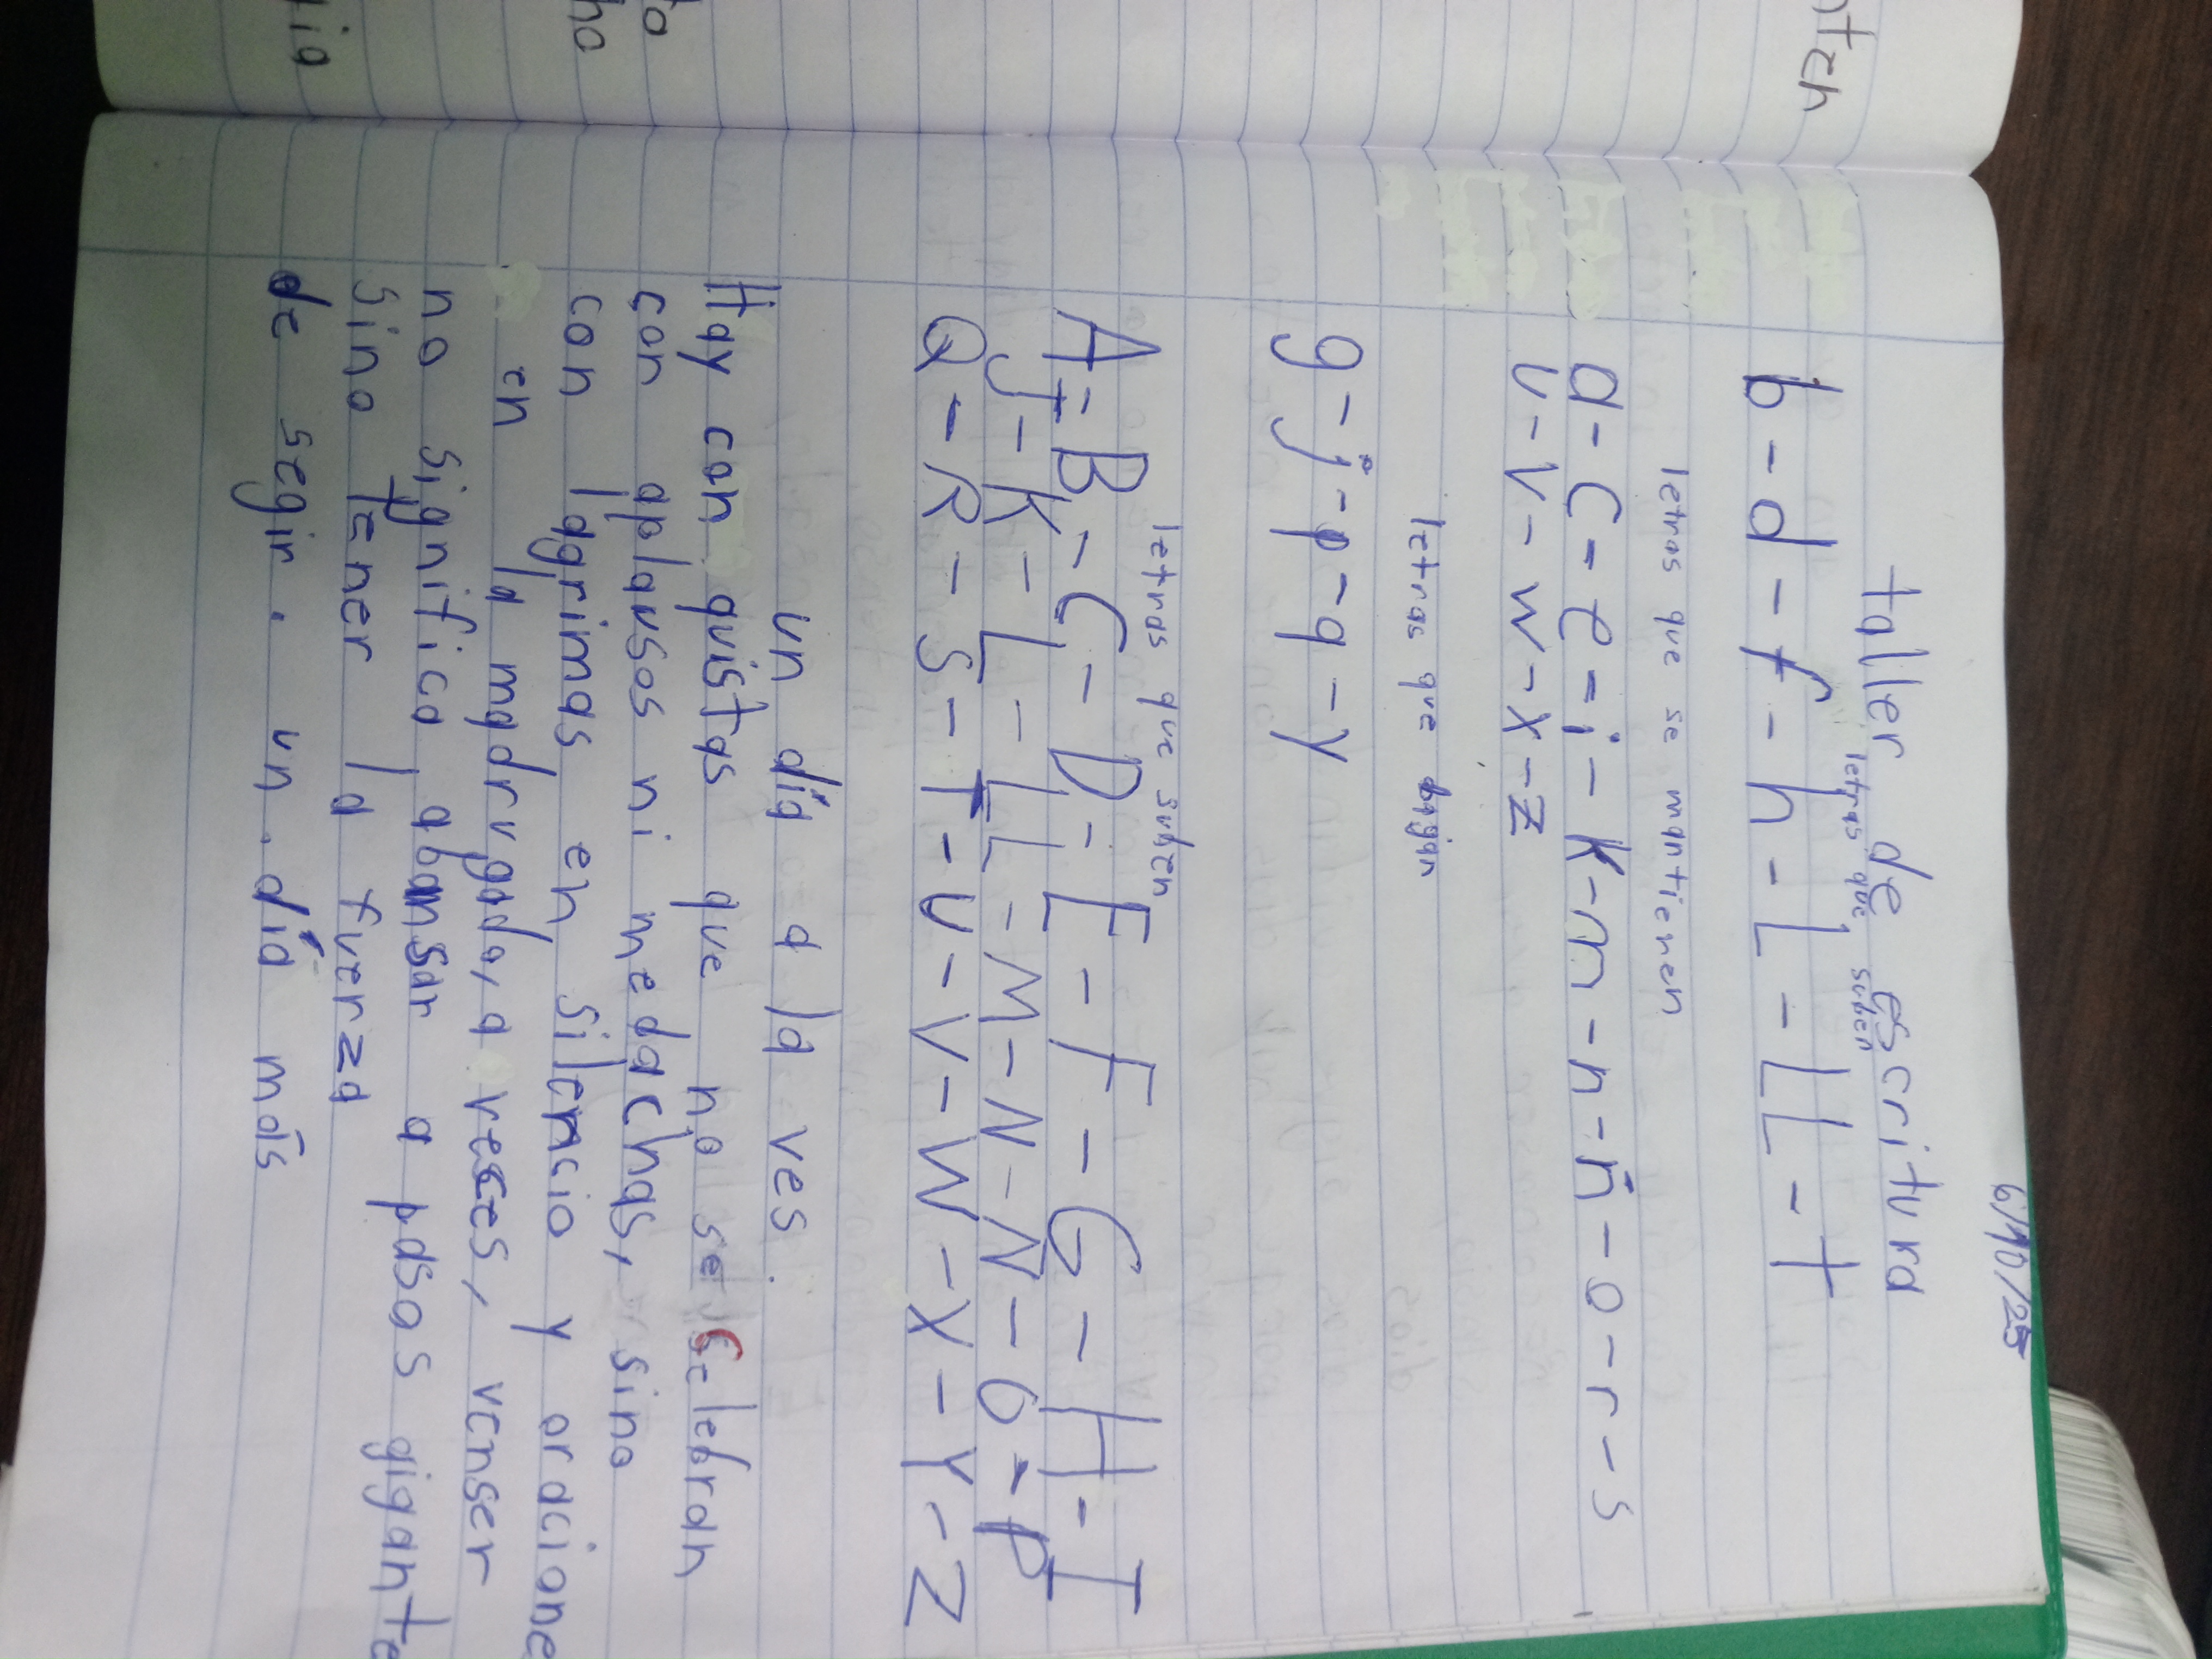 6/10/25
taller de escritura
letras que suben
b - d - f - h - L - LL - t
letras que se mantienen
a - c - e - i - k - m - n - ñ - o - r - s
u - v - w - x - z
letras que bajan
g - j - p - q - y
letras que suben
A - B - C - D - E - F - G - H - I
J - K - L - LL - M - N - Ñ - O - P
Q - R - S - T - U - V - W - X - Y - Z
un día a la ves.
Hay con quistas que no se celebran
con aplausos ni medachas, sino
con lagrimas en silencio y oracione
en la madrugada, a veses, venser
no significa abansar a pasos gigante
sino tener la fuerza
de segir. un. día más
nten
to
ho
ia